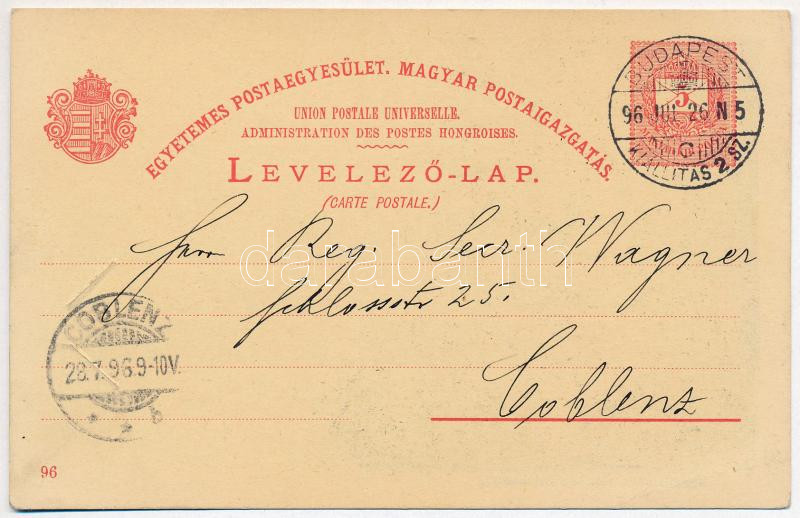 EGYETEMES POSTAEGYESÜLET. MAGYAR POSTAIGAZGATÁS.
UNION POSTALE UNIVERSELLE.
ADMINISTRATION DES POSTES HONGROISES.
LEVELEZŐ-LAP.
(CARTE POSTALE.)
5
BUDAPEST
96 JUL 26 N 5
C
KIÁLLITÁS 2.SZ.
Herrn Reg. Secr. Wagner
Schlossstr 25.
Coblenz
darabanth
COBLENZ
28.7.96.9-10V.
96